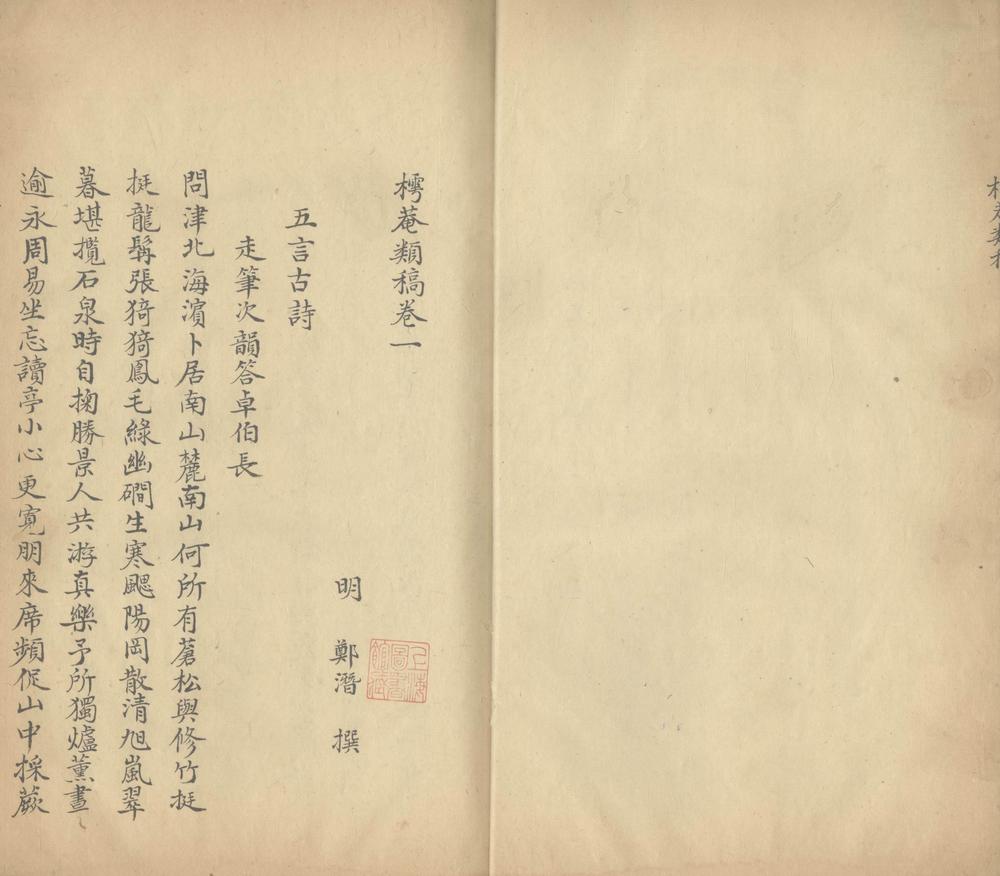 樗菴類稿卷一
明 鄭潛 撰
五言古詩
走筆次韻答卓伯長
問津北海濱卜居南山麓南山何所有蒼松與修竹挺
挺龍髯張猗猗鳳毛綠幽磵生寒颸陽岡散清旭嵐翠
暮堪攬石泉時自掬勝景人共游真樂予所獨爐薰晝
逾永周易坐忘讀亭小心更寬朋來席頻促山中採蕨
上海圖書館藏